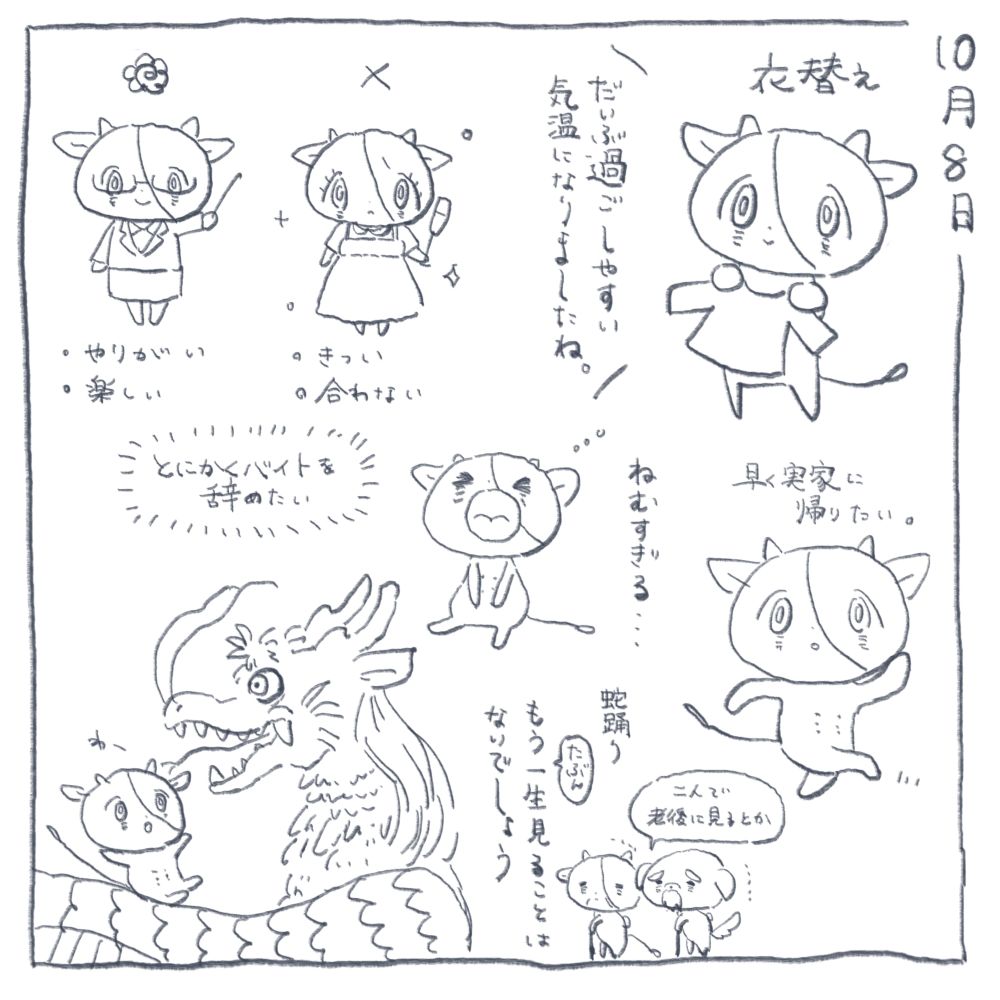 10月8日
衣替え
だいぶ過ごしやすい
気温になりましたね。
×
・やりがい
・楽しい
・きつい
・合わない
とにかくバイトを
辞めたい
ねむすぎる…
早く実家に
帰りたい。
わー
蛇踊り
もう一生見ることは
ないでしょう
たぶん
二人で
老後に見るとか